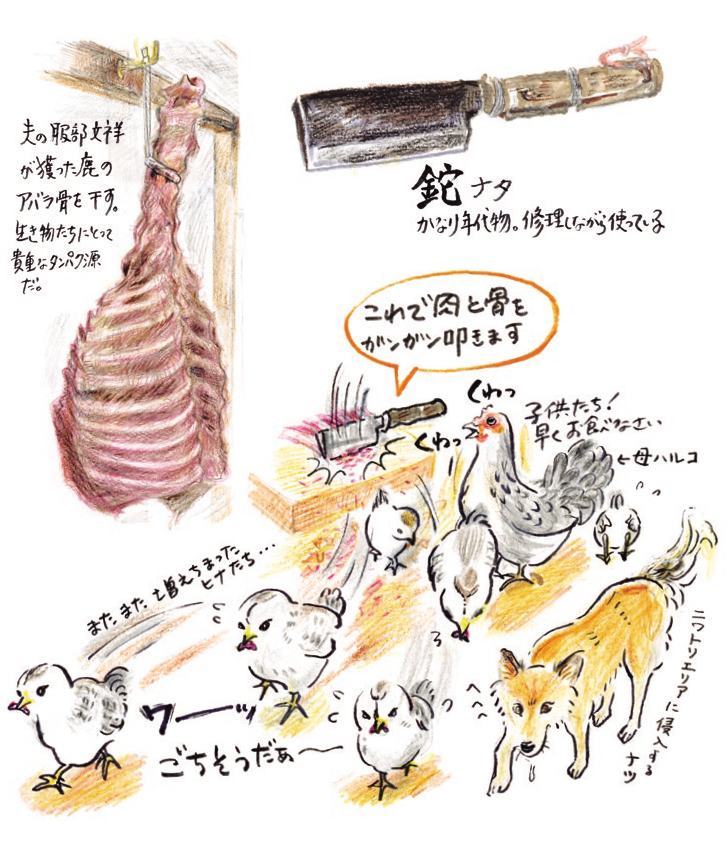 夫の服部文祥
が獲った鹿の
アバラ骨を干す。
生き物たちにとって
貴重なタンパク源
だ。
鉈 ナタ
かなり年代物。修理しながら使っている
これで肉と骨を
ガンガン叩きます
くわっ
くわっ
子供たち!
早くお食べなさい
←母ハルコ
またまた増えちまった
ヒナたち…
ワーーッ
ごちそうだぁ〜
へへへ
ニワトリエリアに侵入する
ナツ